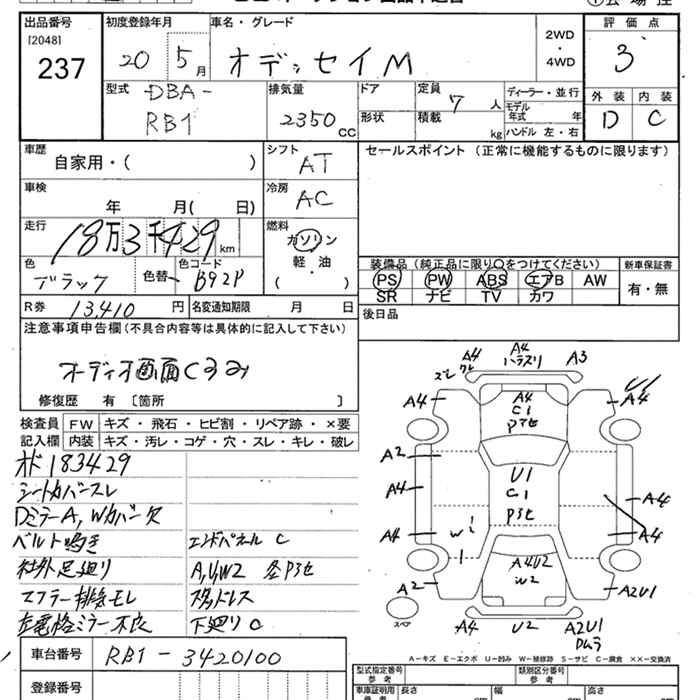 出品番号 初度登録年月 車名・グレード 2WD・4WD 評価点
[2048]
237 20 5月 オデッセイM 3
型式 排気量 ドア 定員 7人 ディーラー・並行 外装 内装
DBA-RB1 2350CC 形状 積載 kg モデル年式 年 D C
ハンドル 左・右
車歴 シフト セールスポイント (正常に機能するものに限ります)
自家用・( ) AT
車検 冷房
年 月( 日) AC
走行 燃料
18万3千429km ガソリン
軽・油
( )
色 色コード 装備品 (純正品に限り○をつけてください) 新車保証書
ブラック 色替 B92P PS PW ABS エアB AW 有・無
SR ナビ TV カワ
R券 13,410円 名変通知期限 月 日 後日品
注意事項申告欄 (不具合内容等は具体的に記入して下さい)
オーディオ画面Cスミ
修復歴 有 〔箇所 〕
検査員 FW キズ・飛石・ヒビ割・リペア跡・×要
記入欄 内装 キズ・汚レ・コゲ・穴・スレ・キレ・破レ
オド183429
シートカバースレ
DミラーA, Wカバー欠
ベルト鳴き エンドパネルC
社外足廻り A,U,W2 各Pヨセ
マフラー排気モレ スタッドレス
左電格ミラー不良 下廻りC
A4 A4 A3
スレ ワレ ハラスリ
A4 A4 A4
C1
Pヨセ
A2
A4 U1 A4
C1
Pヨセ
A4 W1 A4
A2 A4U2 A2U1
W2
スペア A4 U2 A2U1
Dムラ
A-キズ E-エクボ U-凹み W-補修跡 S-サビ C-腐食 ××-交換済
車台番号 RB1-3420100
型式指定番号 類別区分番号
登録番号 車庫証明用 長さ cm 幅 cm 高さ cm